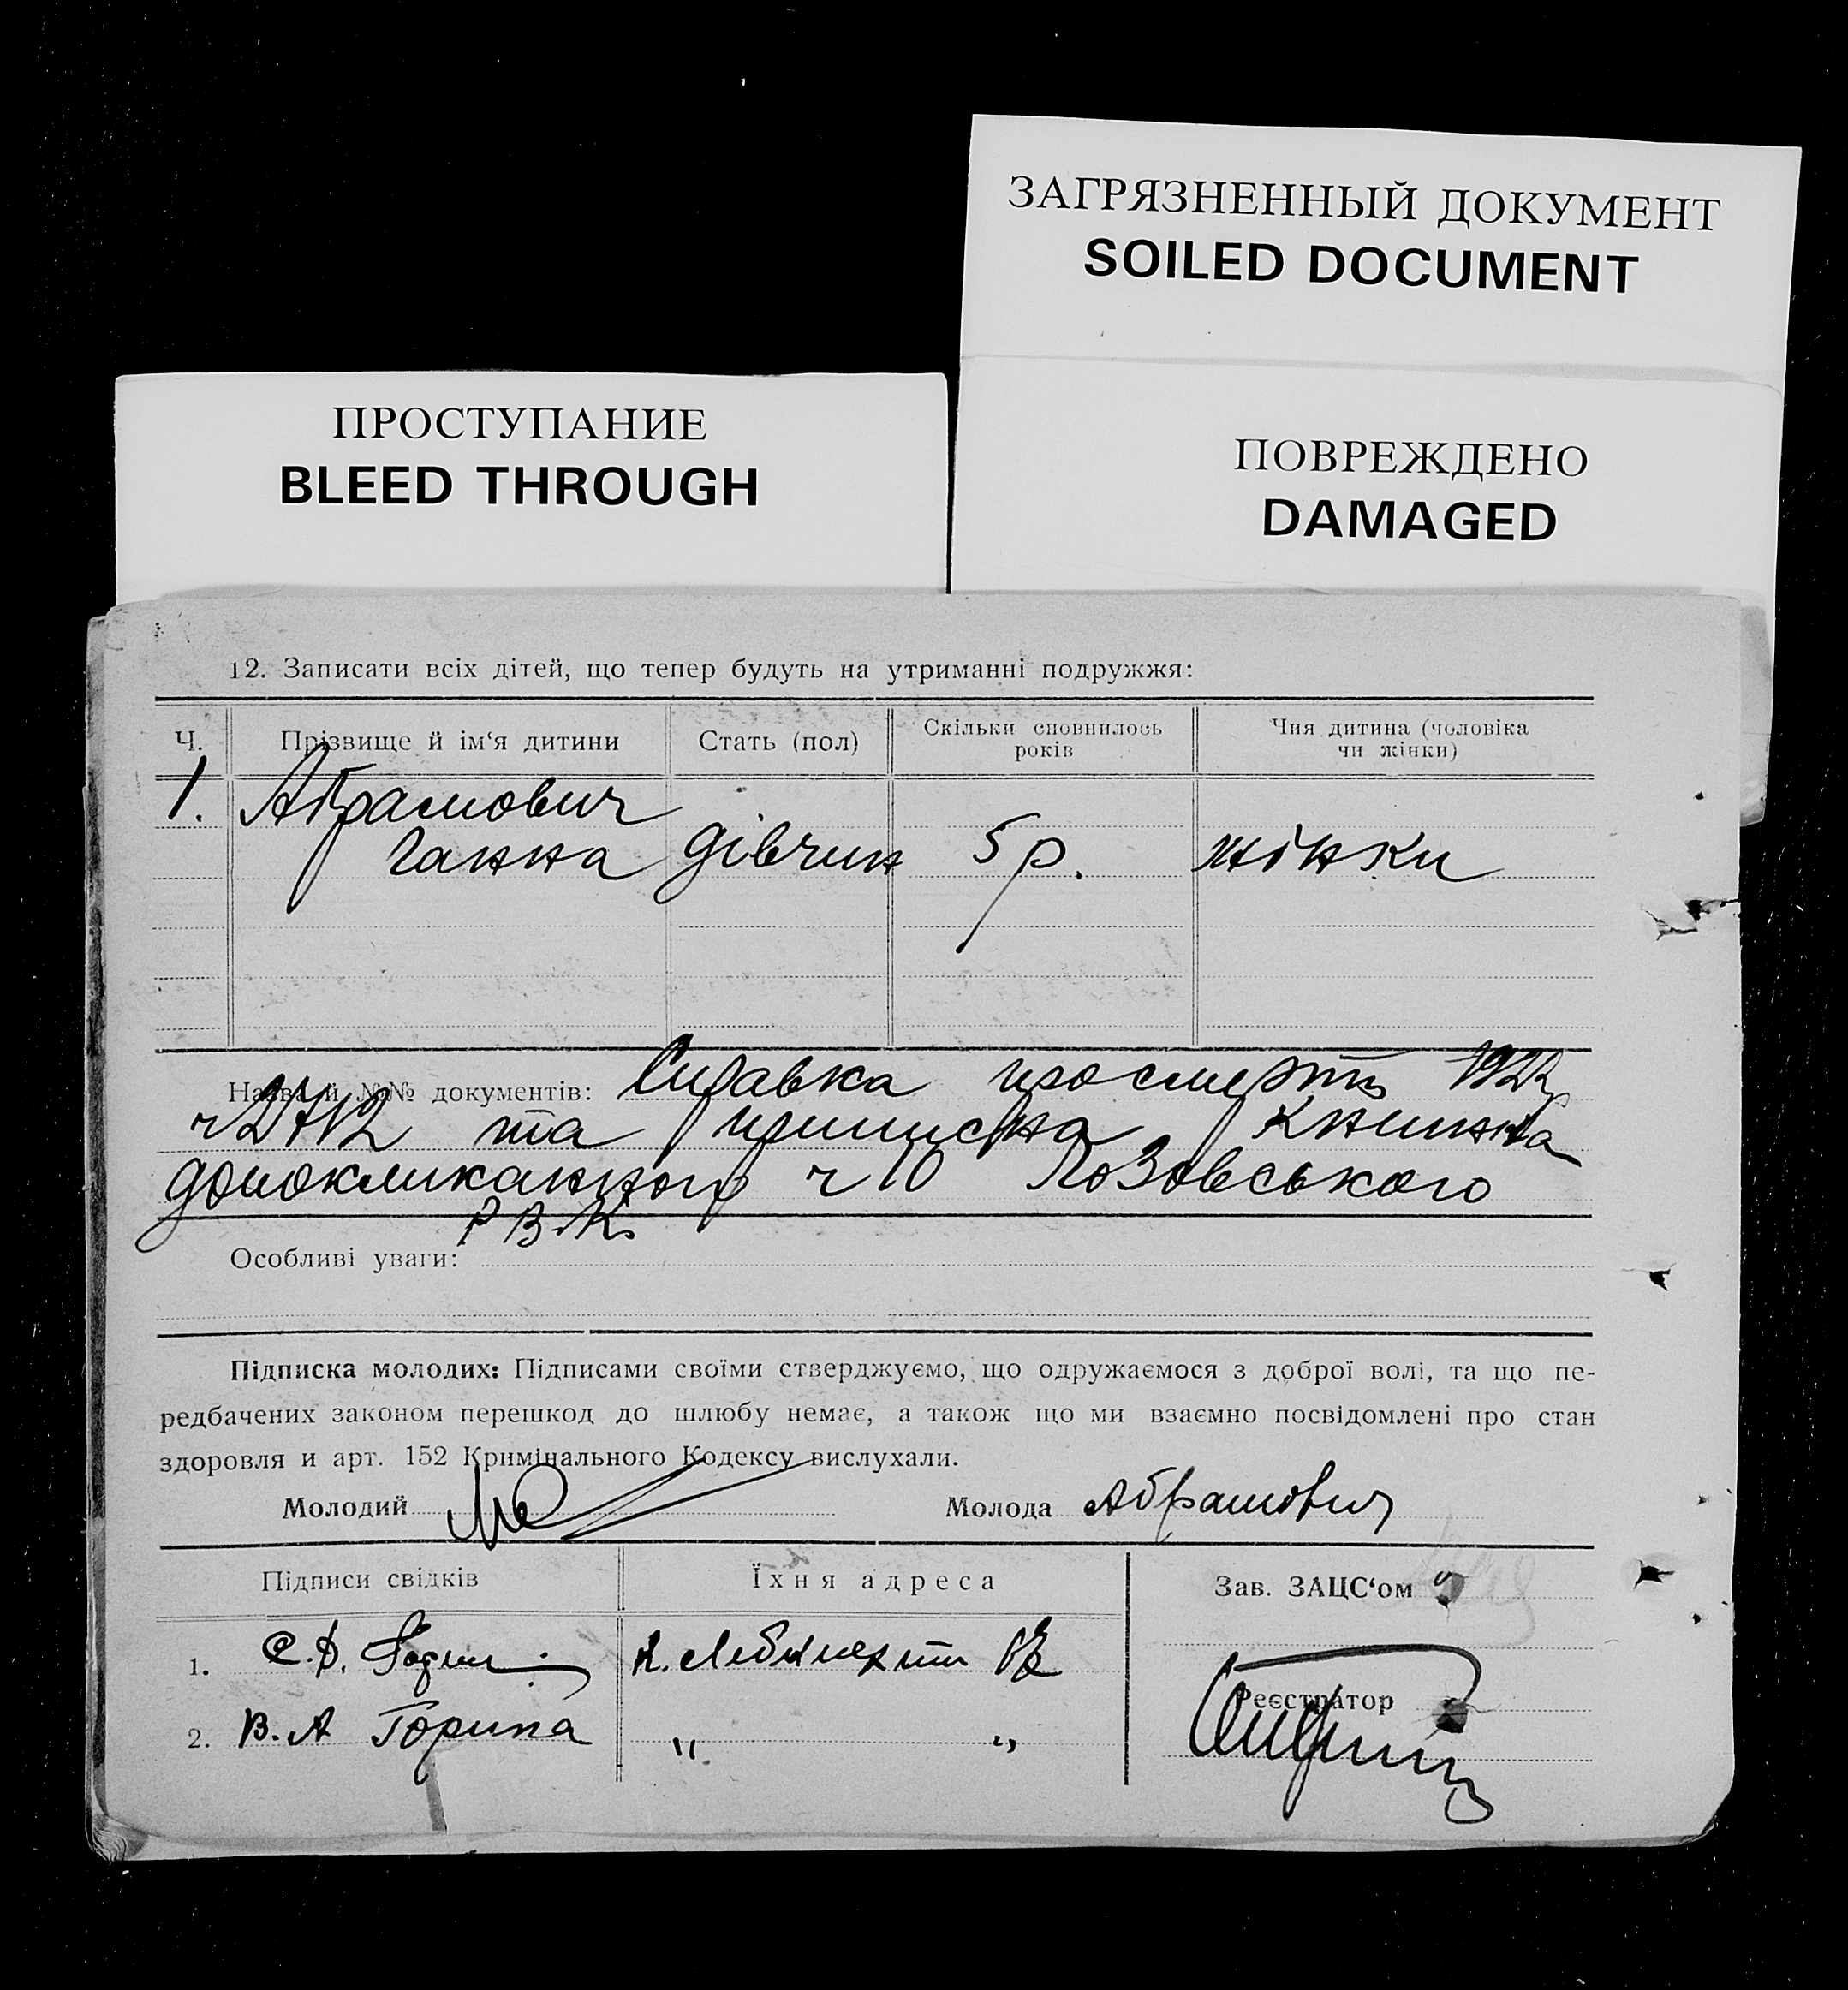 ЗАГРЯЗНЕННЫЙ ДОКУМЕНТ
SOILED DOCUMENT
ПРОСТУПАНИЕ
BLEED THROUGH
ПОВРЕЖДЕНО
DAMAGED
12. Записати всіх дітей, що тепер будуть на утриманні подружжя:
Ч. Прізвище й ім‘я дитини Стать (пол) Скільки сповнилось років Чия дитина (чоловіка чи жінки)
1. Абрамович
Ганна дівчин 5 р. жінки
Назва й №№ документів: Справка про смерть 1922
та приписна книжка
допокликанного ч 10 Лозовського
Р.В.К.
Особливі уваги:
Підписка молодих: Підписами своїми стверджуємо, що одружаємося з доброї волі, та що пе-
редбачених законом перешкод до шлюбу немає, а також що ми взаємно посвідомлені про стан
здоровля и арт. 152 Кримінального Кодексу вислухали.
Молодий Молода Абрамович
Підписи свідків Їхня адреса Зав. ЗАЦС‘ом
1. К. Лебкнехта
Реєстратор
2. В. А Горина " "